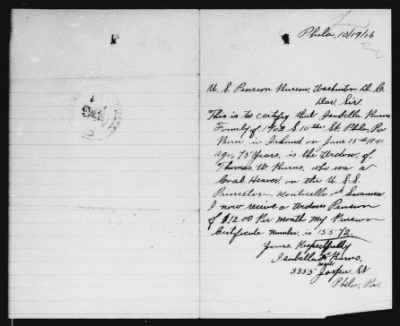 Phila, 10/19/16
U. S. Pension Bureau, Washington D. C.
Dear Sir
This is to certify that Isabella Burns
Formly of 1902 S 10th St. Phila, Pa
Born in Ireland on June 15th 1841
age, 75 Years, is the Widow, of
Thomas W. Burns, who was a
Coal Heaver on the U. S. S.
Princeton, Monticello and
I now receive a Widows Pension
of $12.00 Per Month My Pension
Certificate Number, is 15572
Yours Respectfully
Isabella Burns,
3353 Jasper St
Phila, Pa.